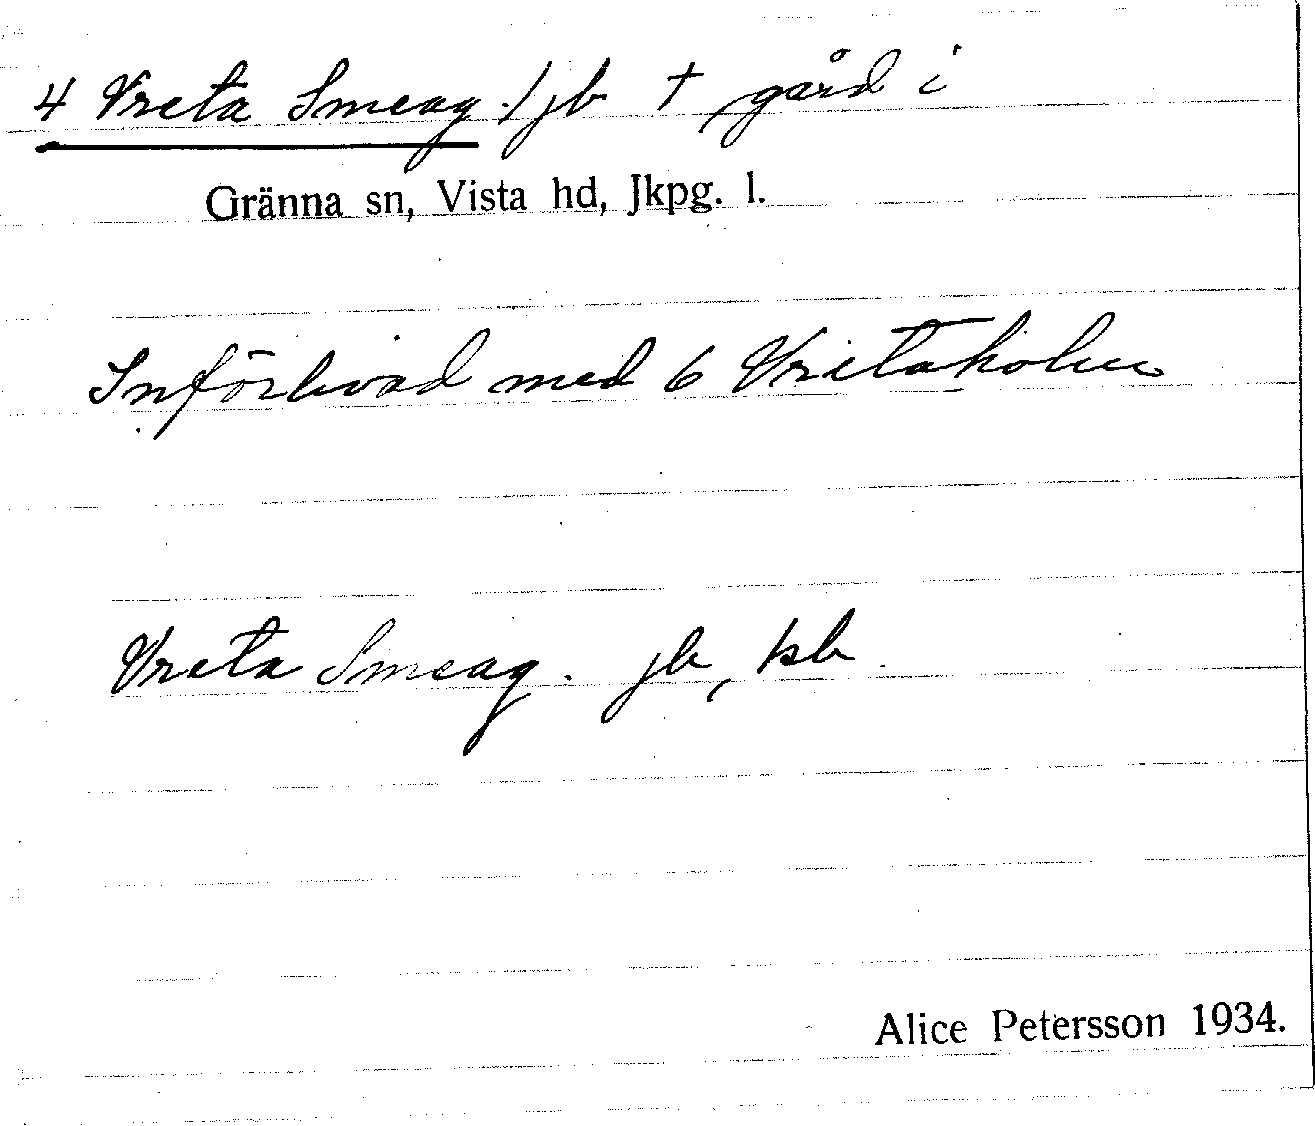 4 Vreta Smeag. /jb † gård i
Gränna sn, Vista hd, Jkpg. l.
Införlivad med 6 Vretaholm
Vreta Smeag. jb, kb.
Alice Petersson 1934.